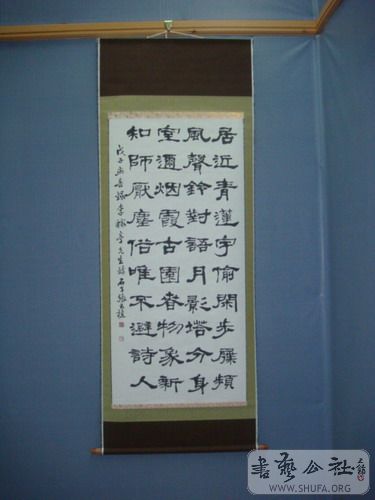 居近青蓮宇偷閑步屧頻
風聲鈴對語月影塔分身
室邇烟霞古園春物象新
知師厭塵俗唯不避詩人
戊子 春錄李 先生詩
書藝公社
WWW.SHUFA.ORG